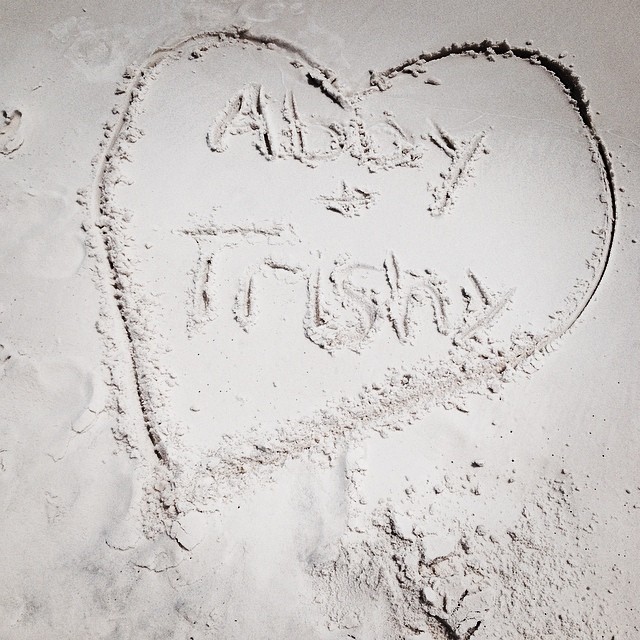 Abby
+
Trishy